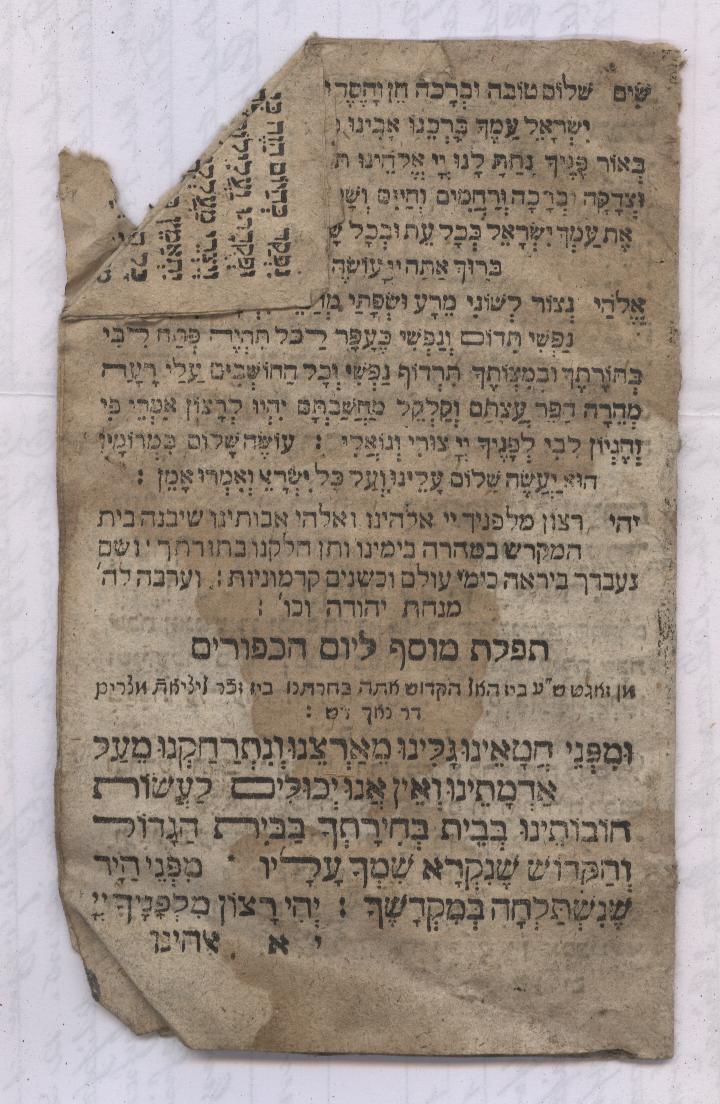 שִׂים שלום טובה וברכה חן וחסד
ישראל עמך ברכנו אבינו
באור פניך נתת לנו יי אלהינו ת
וצדקה וברכה ורחמים וחיים ושל
את עמך ישראל בכל עת ובכל ש
ברוך אתה יי עושה
אֱלֹהַי נצור לשוני מרע ושפתי
נפשי תדום ונפשי כעפר לכל תהיה פתח לבי
בתורתך ובמצותך תרדוף נפשי וכל החושבים עלי רעה
מהרה הפר עצתם וקלקל מחשבתם יהיו לרצון אמרי פי
והגיון לבי לפניך יי צורי וגואלי : עושה שלום במרומיו
הוא יעשה שלום עלינו ועל כל ישראל ואמרו אמן :
יהי רצון מלפניך יי אלהינו ואלהי אבותינו שיבנה בית
המקדש במהרה בימינו ותן חלקנו בתורתך ושם
נעבדך ביראה כימי עולם וכשנים קדמוניות : וערבה לה'
מנחת יהודה וכו' :
תפלת מוסף ליום הכפורים
מן זאגט ש"ע ביז האל הקדוש אתה בחרתנו ביז זכר ליציאת מצרים
דר נאך דש :
ומפני חטאינו גלינו מארצנו ונתרחקנו מעל
אדמתינו ואין אנו יכולים לעשות
חובותינו בבית בחירתך בבית הגדול
והקדוש שנקרא שמך עליו · מפני היד
שנשתלחה במקדשך : יהי רצון מלפניך יי